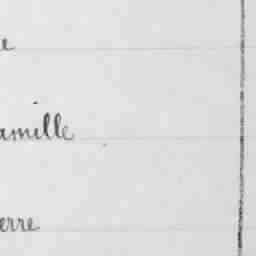 e
amille
erre